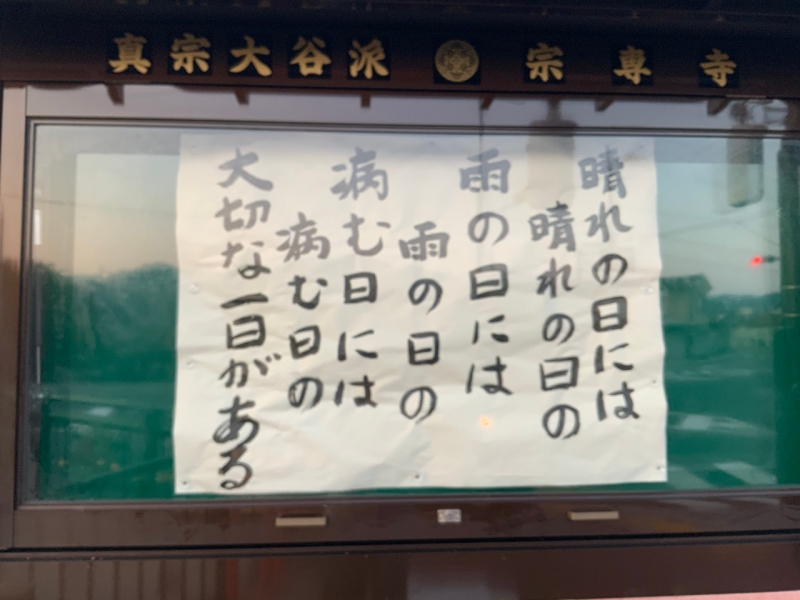 真宗大谷派 宗専寺
晴れの日には
晴れの日の
雨の日には
雨の日の
病む日には
病む日の
大切な一日がある